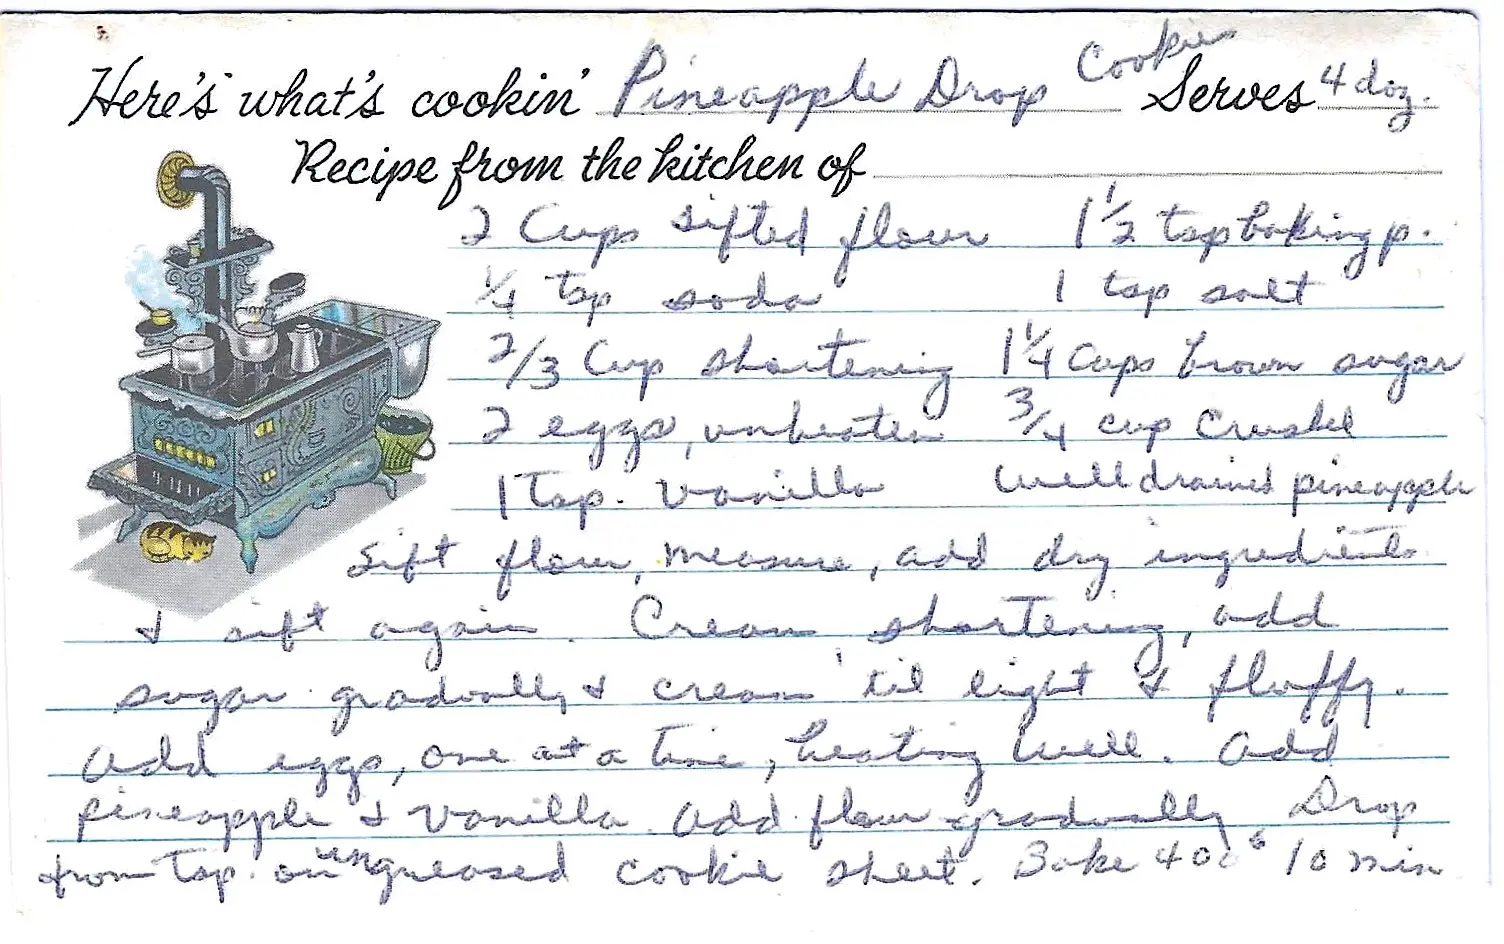 Here's what's cookin' Pineapple Drop Cookies Serves 4 doz.
Recipe from the kitchen of
2 Cups sifted flour 1 1/2 tsp baking p.
1/4 tsp soda 1 tsp salt
2/3 Cup shortening 1 1/4 Cups brown sugar
2 eggs, unbeaten 3/4 cup Crushed
1 Tsp. vanilla well drained pineapple
Sift flour, measure, add dry ingredients
& sift again. Cream shortening, add
sugar gradually & cream 'til light & fluffy.
Add eggs, one at a time, beating well. Add
pineapple & vanilla. Add flour gradually Drop
from Tsp. on ungreased cookie sheet. Bake 400° 10 min